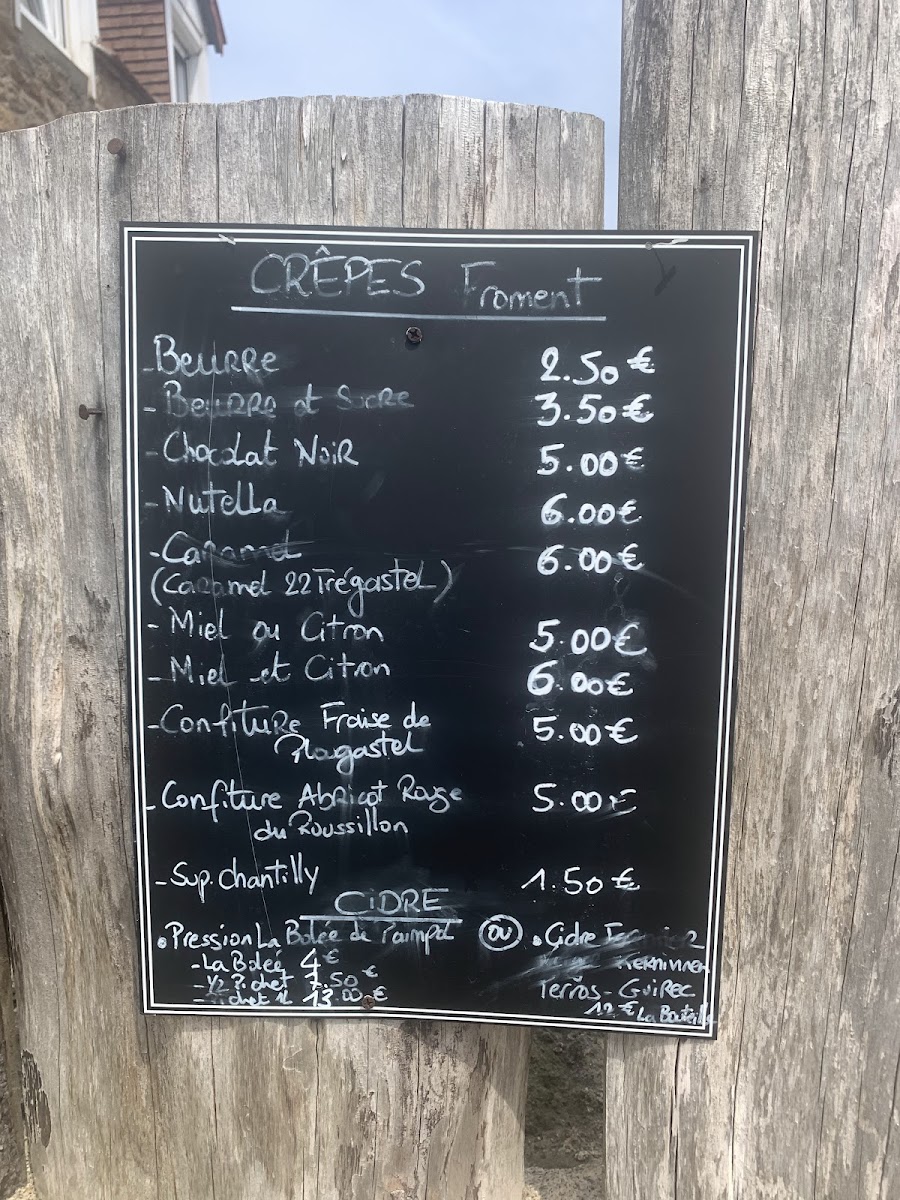 CRÊPES Froment
-Beurre 2.50€
-Beurre et Sucre 3.50€
-Chocolat Noir 5.00€
-Nutella 6.00€
-Caramel 6.00€
(Caramel 22 Trégastel)
-Miel ou Citron 5.00€
-Miel et Citron 6.00€
-Confiture Fraise de 5.00€
Plougastel
-Confiture Abricot Rouge 5.00€
du Roussillon
-Sup. chantilly 1.50€
CIDRE
•Pression La Bolée de Paimpol OU •Cidre Fermier
-La Bolée 4€
-1/2 Pichet 7.50€
-Pichet 1L 13.00€
Perros-Guirec
12€ La Bouteille